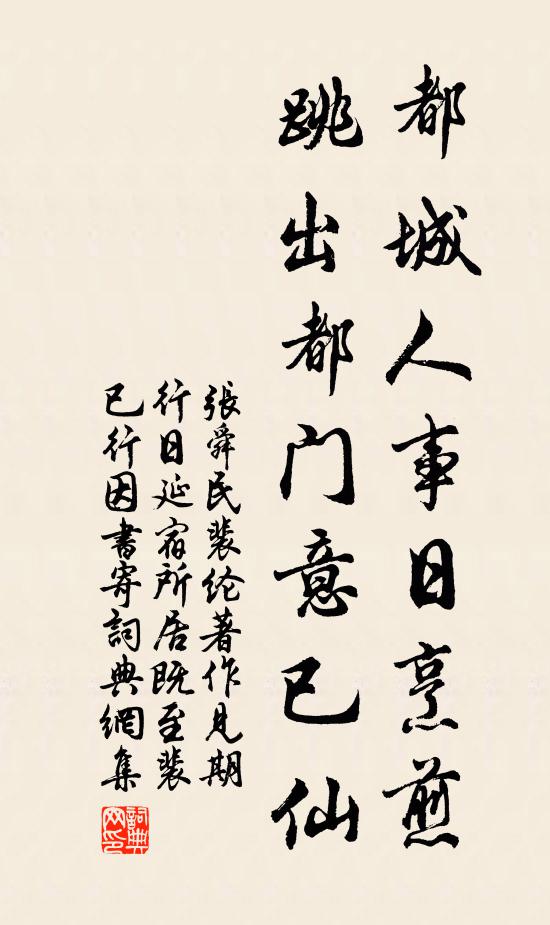 都城人事日烹煎
跳出都门意已仙
張舜民裴纶著作見期
行日延宿所居既至裴
已行因書寄詞典網集
詞典
网印